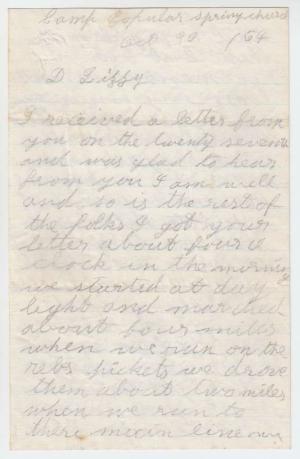 Camp Popular Spring Church
Oct 1864
D. Lizzy
I received a letter from
you on the twenty seventh
and was glad to hear
from you I am well
and so is the rest of
the folks I got your
letter about four o
clock in the morning
we started at day
light and marched
about four miles
when we run on the
rebs pickets we drove
them about two miles
when we run to
there main line